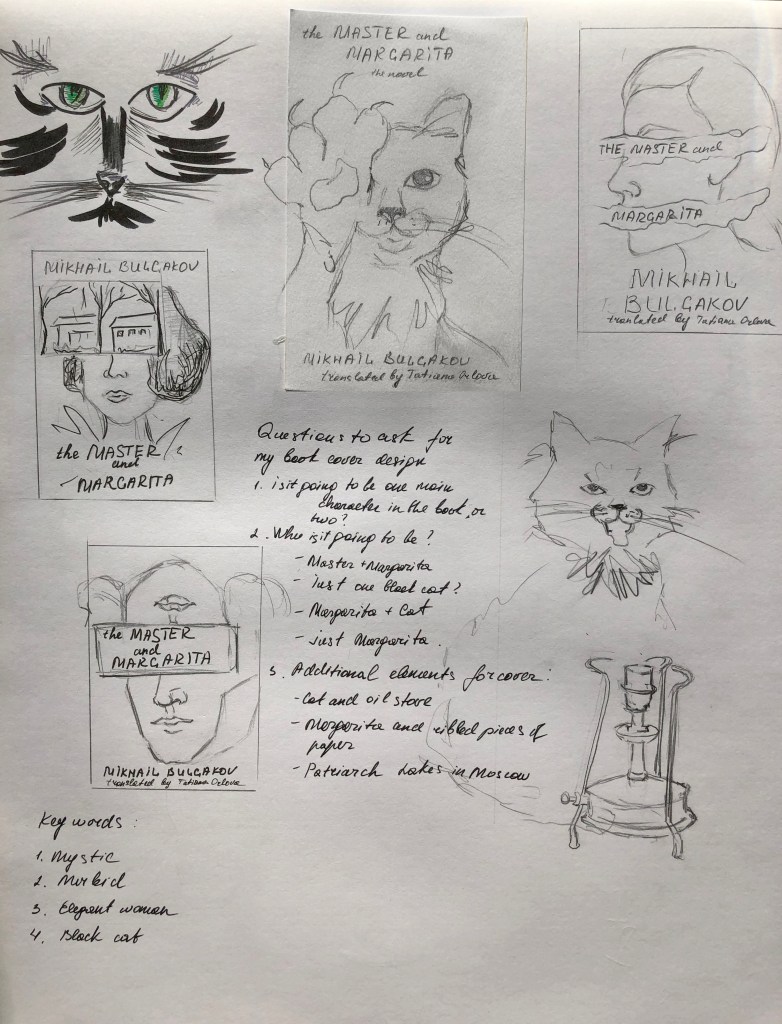 the MASTER and
MARGARITA
the novel
MIKHAIL BULGAKOV
translated by Tatiana Orlova
THE MASTER and
MARGARITA
MIKHAIL
BULGAKOV
translated by Tatiana Orlova
MIKHAIL BULGAKOV
the MASTER
and
MARGARITA
Questions to ask for
my book cover design
1. is it going to be one main
character in the book, or
two?
2. Who is it going to be?
- Master + Margarita
- just one black cat?
- Margarita + Cat
- just Margarita.
3. Additional elements for cover:
- Cat and oil stove
- Margarita and ribbed pieces of
paper
- Patriarch Lakes in Moscow
the MASTER
and
MARGARITA
MIKHAIL BULGAKOV
translated by Tatiana Orlova
Key words:
1. Mystic
2. Morbid
3. Elegant woman
4. Black cat